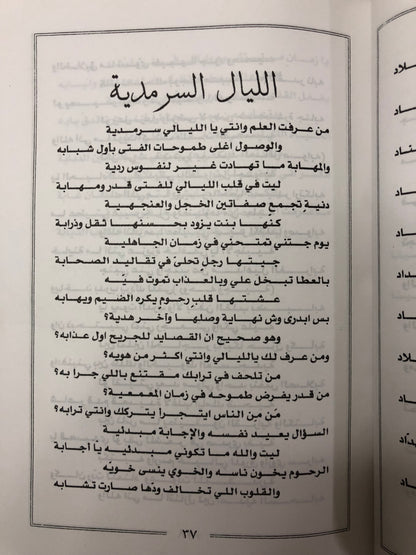 الليال السرمدية
من عرفت العلم وانتي يا الليالي سرمدية
والوصول اغلى طموحات الفتى بأول شبابه
والمهابة ما تهادت غير لنفوس ردية
ليت في قلب الليالي للفتى قدر ومهابة
دنيةٍ تجمع صفاتين الخجل والعنجهية
كنّها بنت يزود بحسنها ثقل وذرابة
يوم جتني تمتحني في زمان الجاهلية
جيتها رجلٍ تحلىّ في تقاليد الصحابة
بالعطا تبخل علي وبالعذاب تموت فيّه
عشتها قلبٍ رحوم يكره الضيم ويهابه
بس ابدرى وش نهاية وصلها وآخر هدية؟
وهو صحيح ان القصايد للجريح اول عذابه؟
ومن عرف لك يالليالي وانتي اكثر من هويه؟
من تلحف في ترابك مقتنع باللي جرا به؟
من قدر يفرض طموحه في زمان المعمعية؟
مَن مِن الناس ايتجرأ يتركك وانتي ترابه؟
السؤال يعيد نفسه والإجابة مبدئية
ليت والله ما تكوني مبدئيه يأ أجابة
الرحوم يخون ناسه والخوي ينسى خويّه
والقلوب اللي تخالف ودّها صارت تشابه
٣٧
لاد
اد
ناد
اد
اد
داد
اد
لاد
اد
دّاد
اد